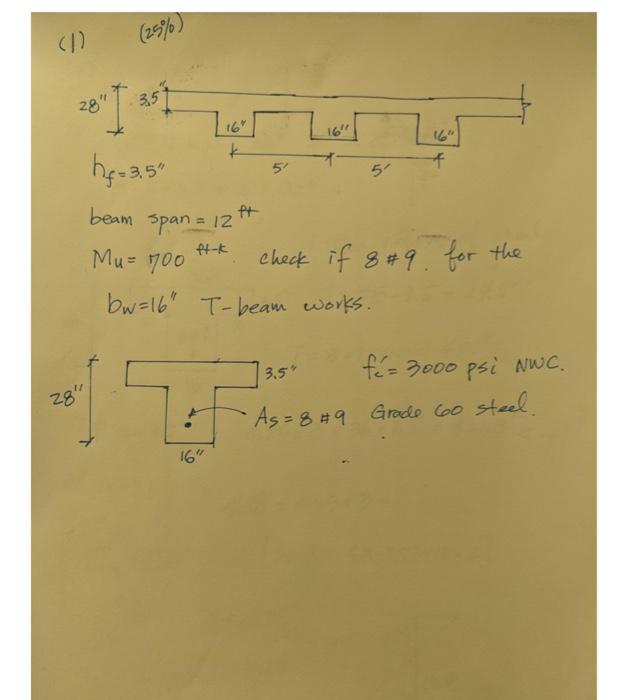 (1) (25%)
28" 3.5"
16" 16" 16"
5' 5'
hf = 3.5"
beam span = 12 ft
Mu = 700 ft-k. check if 8 #9. for the
bw=16" T-beam works.
3.5" f'c = 3000 psi NWC.
28"
As = 8 #9 Grade 60 steel.
16"